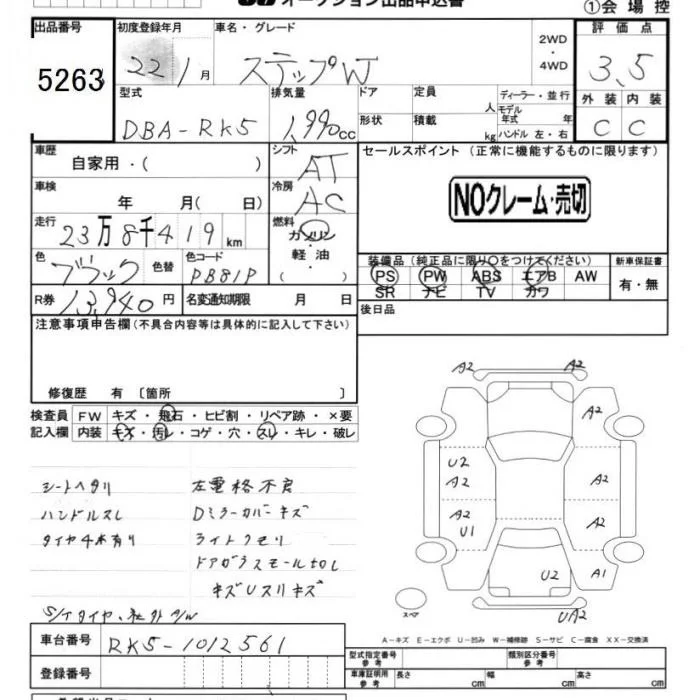 オークション出品申込書
①会場控
出品番号 初度登録年月 車名・グレード 2WD・4WD 評価点
5263 22 1月 ステップW 3.5
型式 排気量 ドア 定員 人 ディーラー・並行 外装 内装
DBA-RK5 1,990cc 形状 積載 kg モデル年式 年 ハンドル 左・右 C C
車歴 シフト セールスポイント (正常に機能するものに限ります)
自家用・( ) AT
車検 冷房 NOクレーム・売切
年 月( 日) AC
走行 燃料
23万8千419km ガソリン・軽油・( )
装備品(純正品に限り○をつけてください) 新車保証書
色 色替 色コード PS PW ABS エアB AW 有・無
ブラック PB81P SR ナビ TV カワ
R券 13,940円 名変通知期限 月 日 後日品
注意事項申告欄(不具合内容等は具体的に記入して下さい)
修復歴 有〔箇所 〕
検査員 FW キズ・飛石・ヒビ割・リペア跡・×要
記入欄 内装 キズ・汚レ・コゲ・穴・スレ・キレ・破レ
シートヘタリ 左電格不良
ハンドルスレ Dミラーカバーキズ
タイヤ4本有り ライトクモリ
ドアガラスモール切レ
キズUスリキズ
S/Tタイヤ、社外A/W
A2 A2
A2
U2
A2 A2
A2 A2
U1
U2 A1
UA2
スペア
A-キズ E-エクボ U-凹み W-補修跡 S-サビ C-腐食 XX-交換済
車台番号 RK5-1012561
登録番号
型式指定番号 参考 類別区分番号 参考
車庫証明用 参考 長さ cm 幅 cm 高さ cm